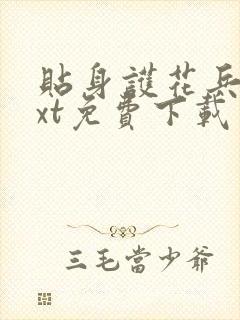 貼身護花兵
xt免費下載
三毛當少爺